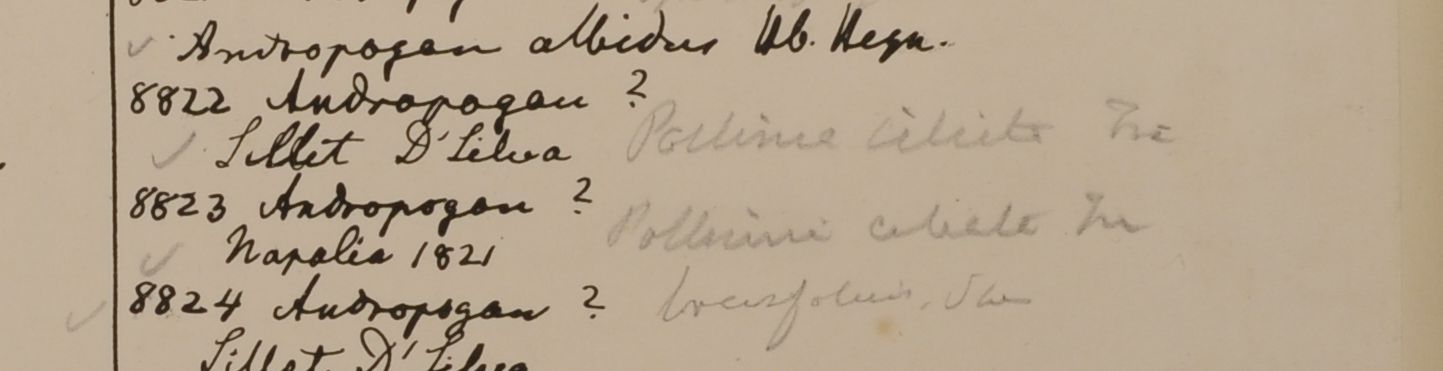 Andropogon albidus Hb. Heyn.
8822 Andropogon ?
Pollinia ciliata Tri
Sillet D'Silva
8823 Andropogon ?
Pollinia ciliata Tri
Napalia 1821
8824 Andropogon ? brevifolius. Sw
Sillet D'Silva